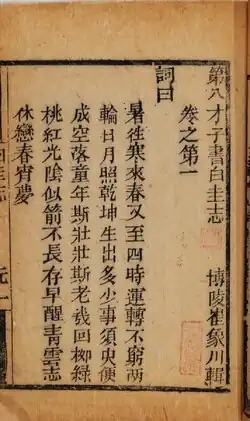 第八才子書白圭志 博陵崔象川輯
卷之第一
詞曰
暑徃寒來春又至四時運轉不窮兩
輪日月照乾坤生出多少事須臾便
成空落童年斯壯壯斯老㦲回柳綠
桃紅光陰似箭不長存早醒青雲志
休戀春宵夢